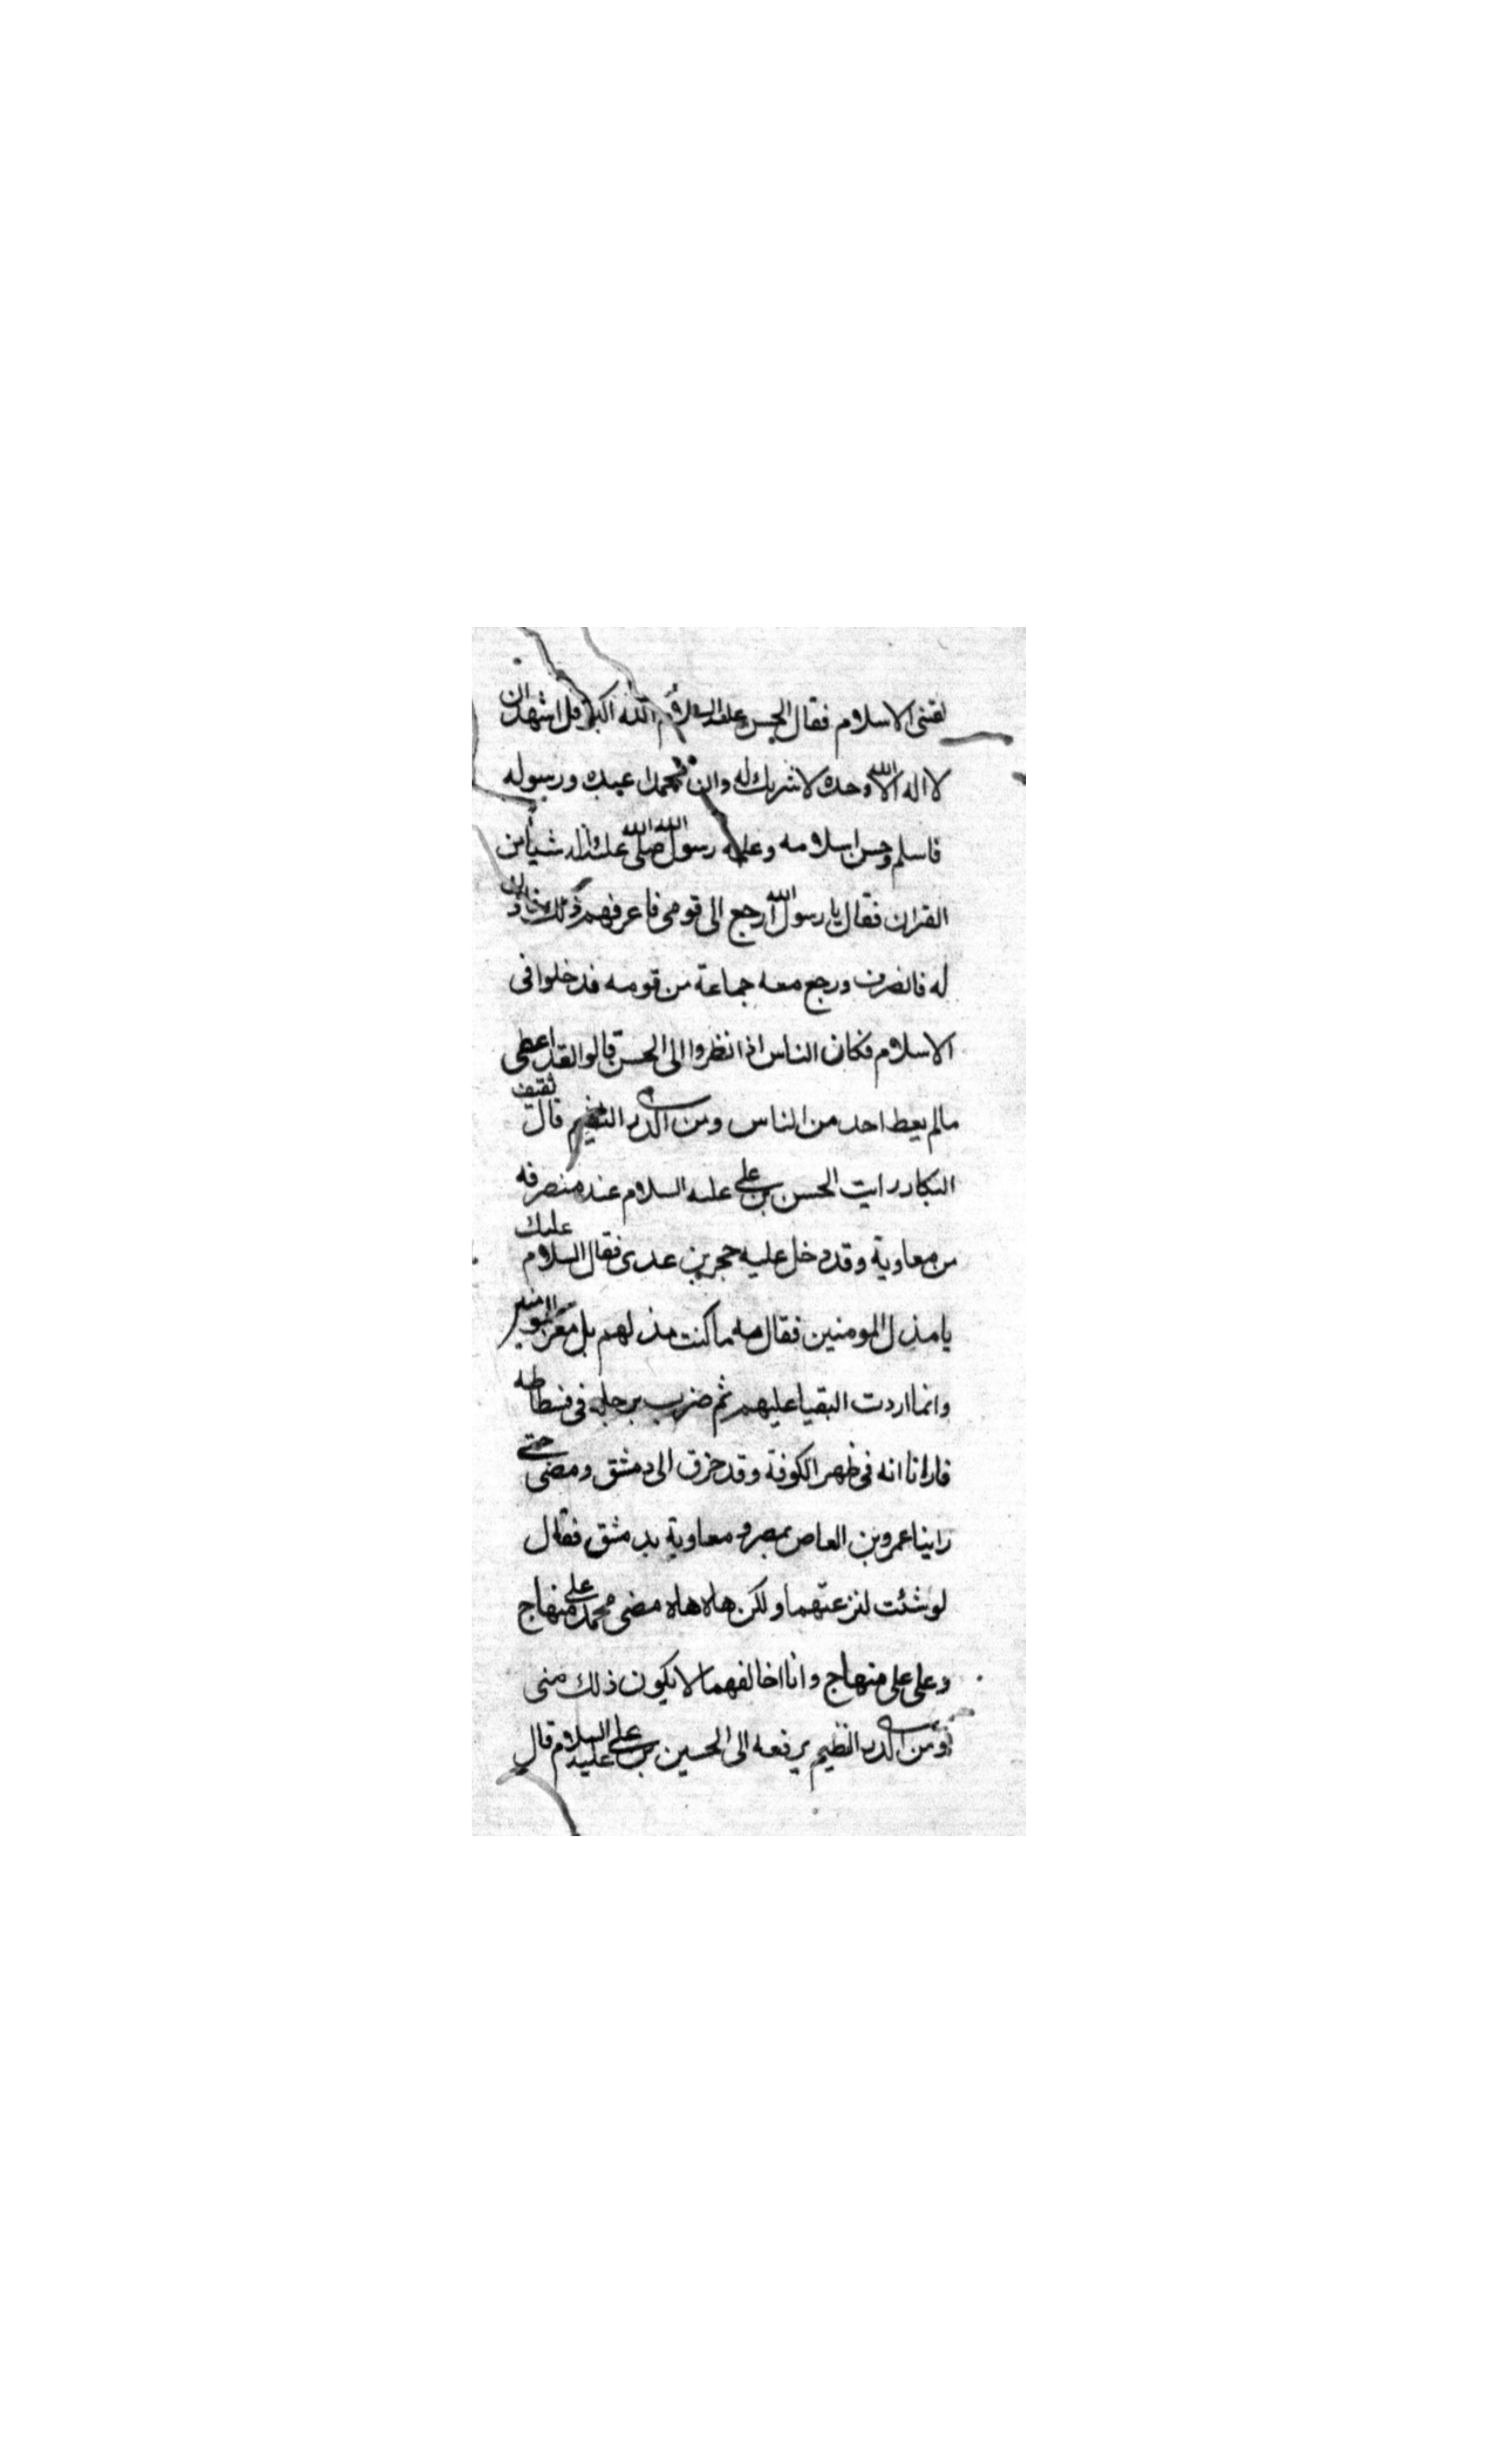 لقنى الاسلام فقال الحسن عليه السلام الله اكبر قل اشهد ان
لا اله الا الله وحده لا شريك له وان محمدا عبده ورسوله
فاسلم وحسن اسلامه وعلمه رسول الله صلى الله عليه واله شيأ من
القران فقال يا رسول الله ارجع الى قومى فاعرفهم ذلك فاذن
له فانصرف ورجع معه جماعة من قومه فدخلوا فى
الاسلام فكان الناس اذا نظروا الى الحسن قالوا لقد اعطى
مالم يعط احد من الناس ومن الدر النظيم قال ثقيف
البكا رايت الحسن بن على عليه السلام عند منصرفه
من معاوية وقد دخل عليه حجر بن عدى فقال السلام عليك
يا مذل المومنين فقال مه ما كنت مذلهم بل معز المومنين
وانما اردت البقيا عليهم ثم ضرب برجله فى فسطاطه
فارانا انه فى ظهر الكوفة وقد خرق الى دمشق ومضى حتى
راينا عمرو بن العاص بمصر و معاوية بدمشق فقال
لو شئت لنزعتهما ولكن هاه هاه مضى محمد على منهاج
وعلى على منهاج وانا اخالفهما لا يكون ذلك منى
ومن الدر النظيم يرفعه الى الحسين بن على عليه السلام قال